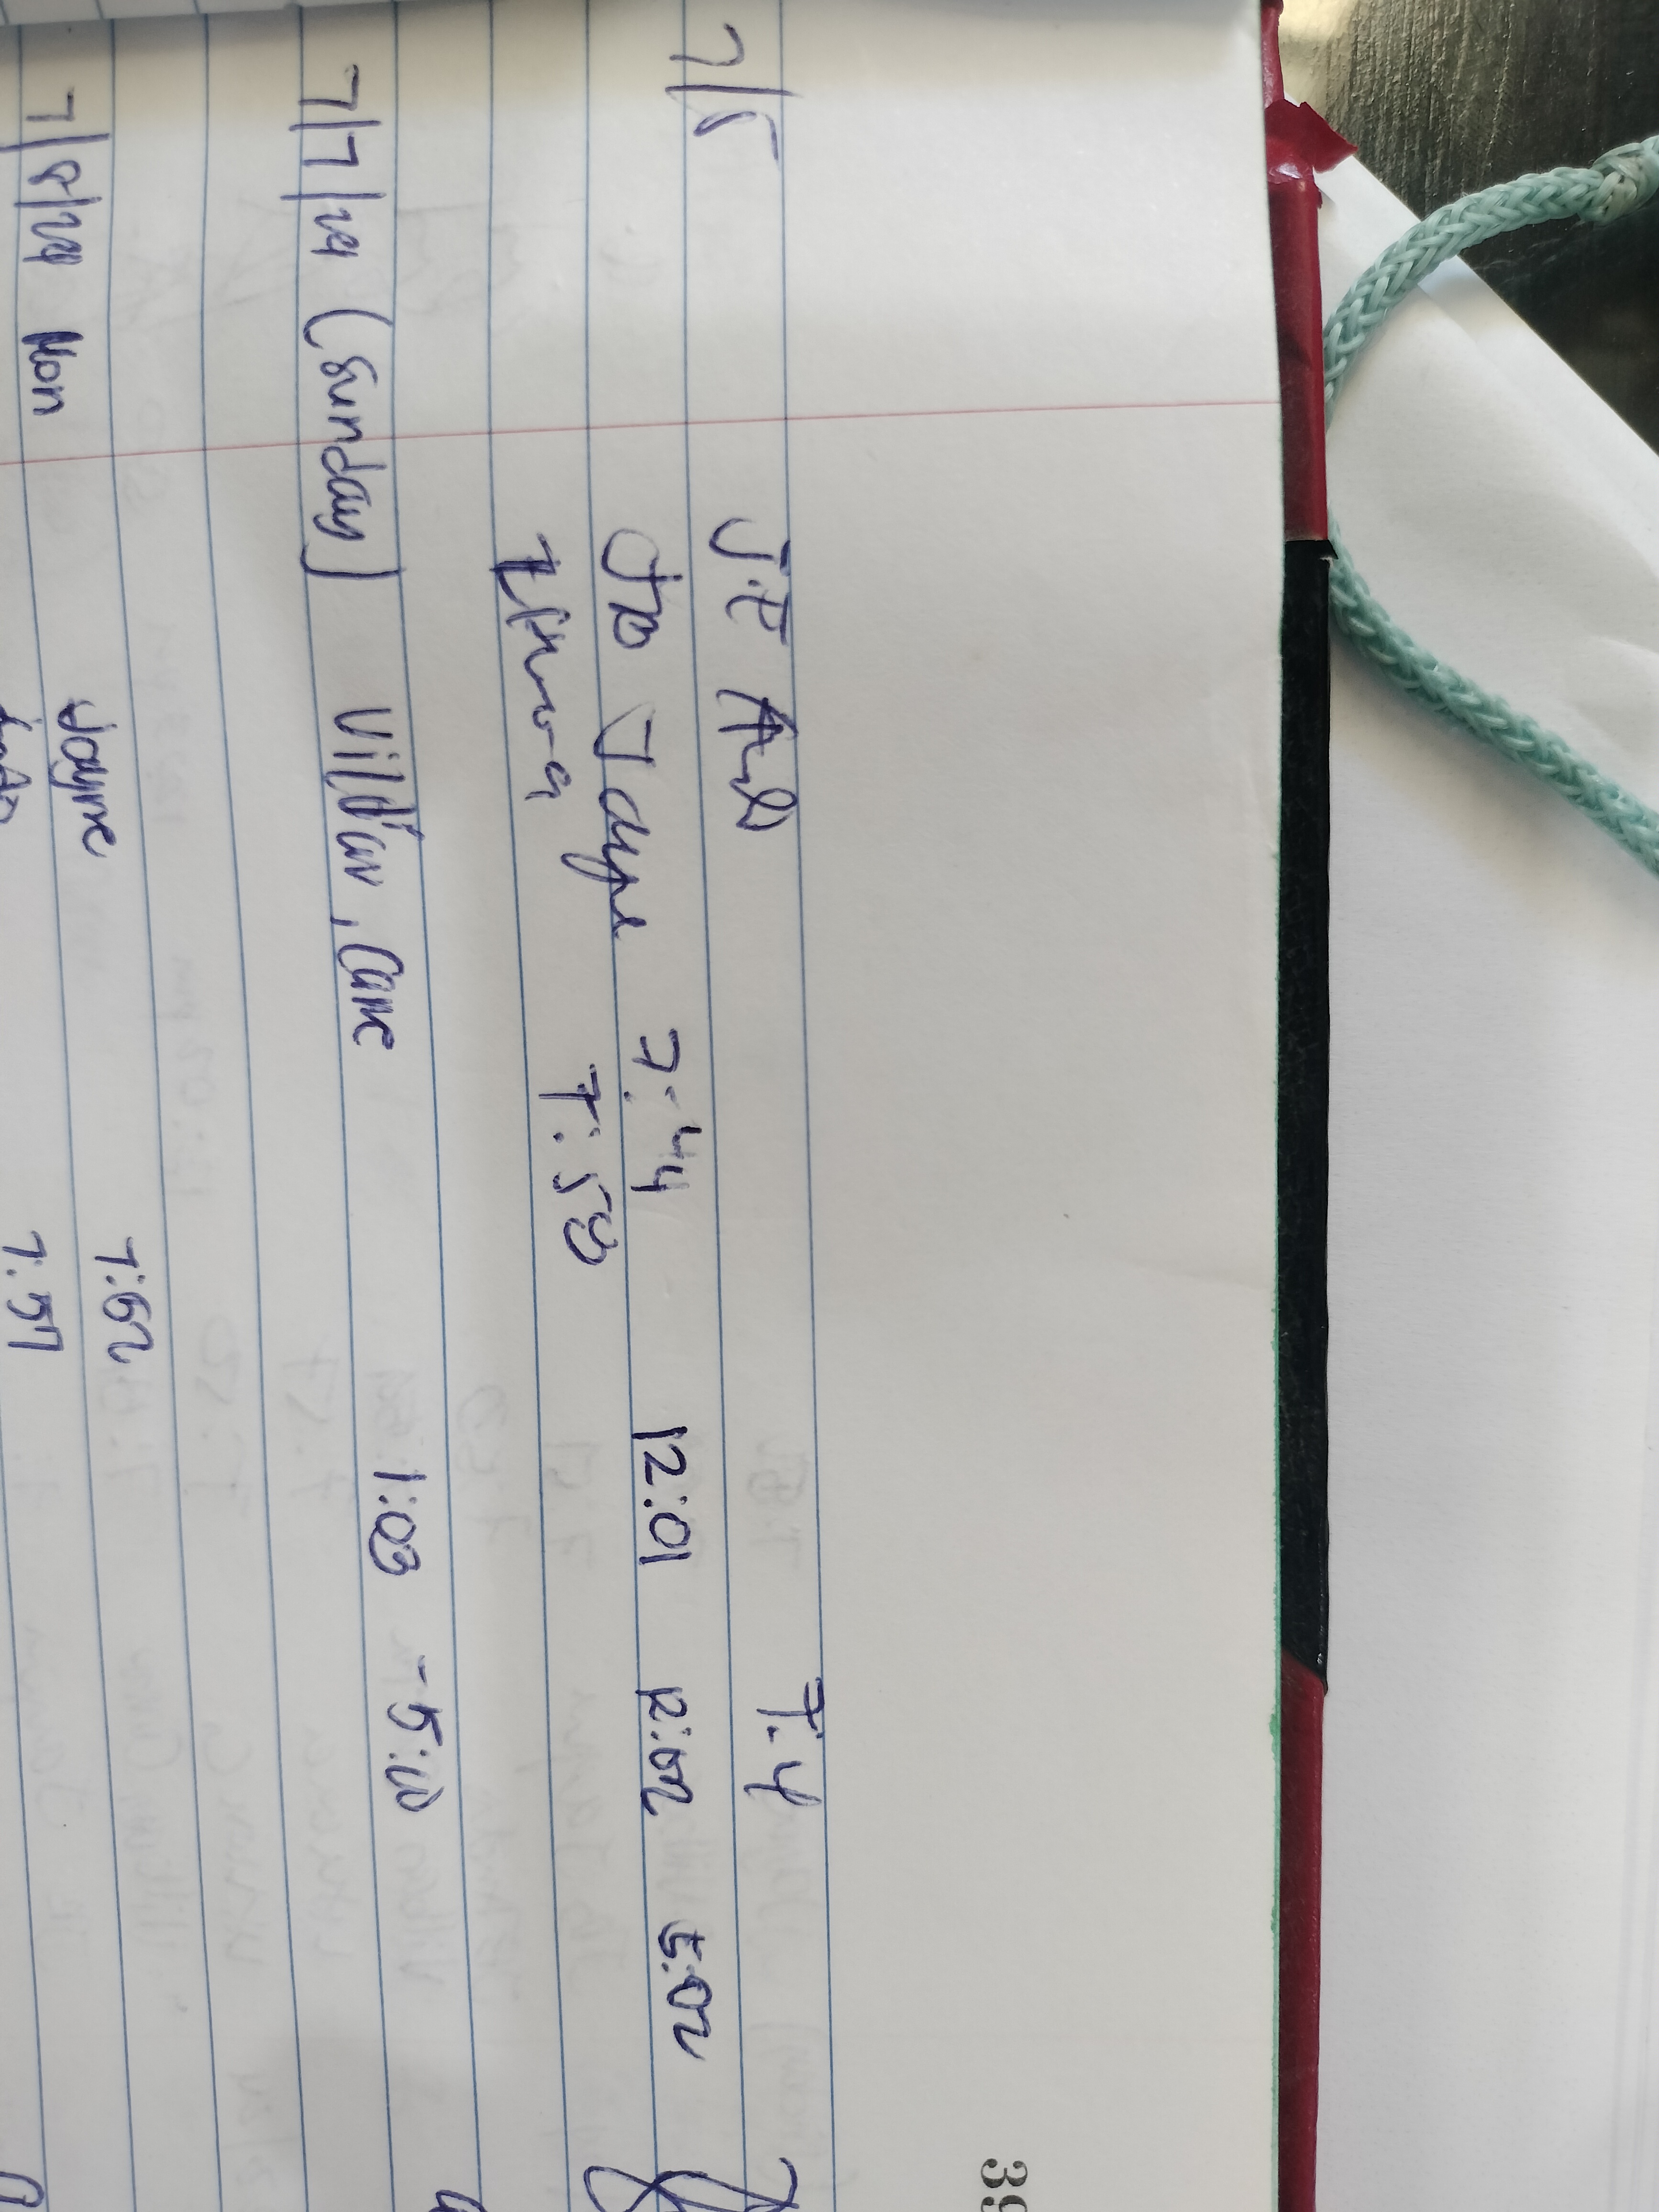 39
7/5 J.E 7:4
Jo Jayme 7:44 12:01 12:02 5:02
7:58
7/7/24 (Sunday) Villar, Cane 1:03 - 5:10
Jayme 7:52
7/8/24 Mon 7:57